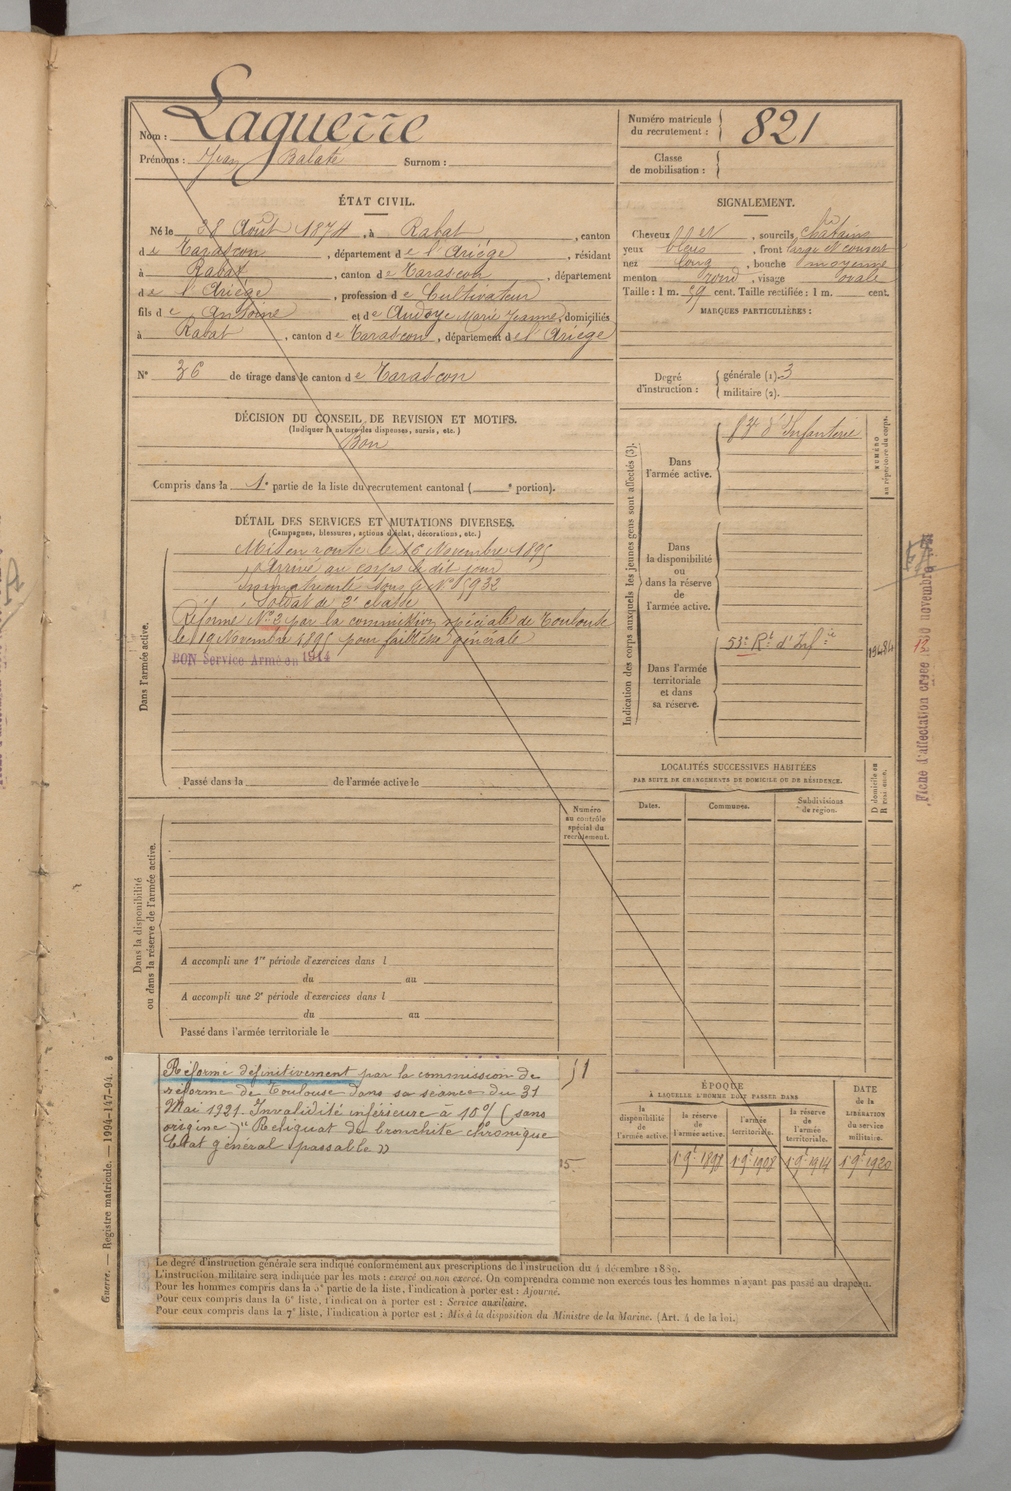 Nom : Laguerre
Prénoms : Jean Balaté Surnom :
Numéro matricule du recrutement : 821
Classe de mobilisation :
ÉTAT CIVIL.
Né le 28 Août 1874, à Rabat, canton
de Tarascon, département de l'Ariège, résidant
à Rabat, canton de Tarascon, département
de l'Ariège, profession de Cultivateur
fils d'Antoine et de Audoye Marie Jeanne, domiciliés
à Rabat, canton de Tarascon, département de l'Ariège
N° 36 de tirage dans le canton de Tarascon
SIGNALEMENT.
Cheveux et, sourcils châtains
yeux bleus, front large et couvert
nez long, bouche moyenne
menton rond, visage ovale
Taille : 1 m. 59 cent. Taille rectifiée : 1 m. cent.
MARQUES PARTICULIÈRES :
Degré d'instruction : générale (1). 3
militaire (2).
DÉCISION DU CONSEIL DE REVISION ET MOTIFS.
(Indiquer la nature des dispenses, sursis, etc.)
Bon
Compris dans la 1e partie de la liste du recrutement cantonal ( e portion).
DÉTAIL DES SERVICES ET MUTATIONS DIVERSES.
(Campagnes, blessures, actions d'éclat, décorations, etc.)
Dans l'armée active.
Mis en route le 16 Novembre 1895
Arrivé au corps le dit jour
Immatriculé sous le N° 5933
Soldat de 2e classe
Réformé N° 2 par la commission spéciale de Toulouse
le 19 Novembre 1895 pour faiblesse générale
BON Service Armé en 1914
Passé dans la de l'armée active le
Indication des corps auxquels les jeunes gens sont affectés (3).
Dans l'armée active.
83e d'Infanterie
NUMÉRO au répertoire du corps.
Dans la disponibilité ou dans la réserve de l'armée active.
Dans l'armée territoriale et dans sa réserve.
53e Rt d'Infie
LOCALITÉS SUCCESSIVES HABITÉES
PAR SUITE DE CHANGEMENTS DE DOMICILE OU DE RÉSIDENCE.
Dates. Communes. Subdivisions de région.
D domicile ou R résidence.
Numéro au contrôle spécial du recrutement.
Dans la disponibilité ou dans la réserve de l'armée active.
A accompli une 1re période d'exercices dans l
du au
A accompli une 2e période d'exercices dans l
du au
Passé dans l'armée territoriale le
Réformé définitivement par la commission de
réforme de Toulouse dans sa séance du 31
Mai 1921. Invalidité inférieure à 10% (sans
origine) "Reliquat de bronchite chronique
Etat général passable"
ÉPOQUE
À LAQUELLE L'HOMME DOIT PASSER DANS
la disponibilité de l'armée active.
la réserve de l'armée active.
l'armée territoriale.
la réserve de l'armée territoriale.
DATE DE LA LIBÉRATION du service militaire.
1er 9bre 1898 1er 9bre 1908 1er 9bre 1914 1er 9bre 1920
Le degré d'instruction générale sera indiqué conformément aux prescriptions de l'instruction du 4 décembre 1889.
L'instruction militaire sera indiquée par les mots : exercé ou non exercé. On comprendra comme non exercés tous les hommes n'ayant pas passé au drapeau.
Pour les hommes compris dans la 5e partie de la liste, l'indication à porter est : Ajourné.
Pour ceux compris dans la 6e liste, l'indication à porter est : Service auxiliaire.
Pour ceux compris dans la 7e liste, l'indication à porter est : Mis à la disposition du Ministre de la Marine. (Art. 4 de la loi.)
Guerre. — Registre matricule. — 1994-147-94.
Fiche d'affectation créée le 30 novembre 19